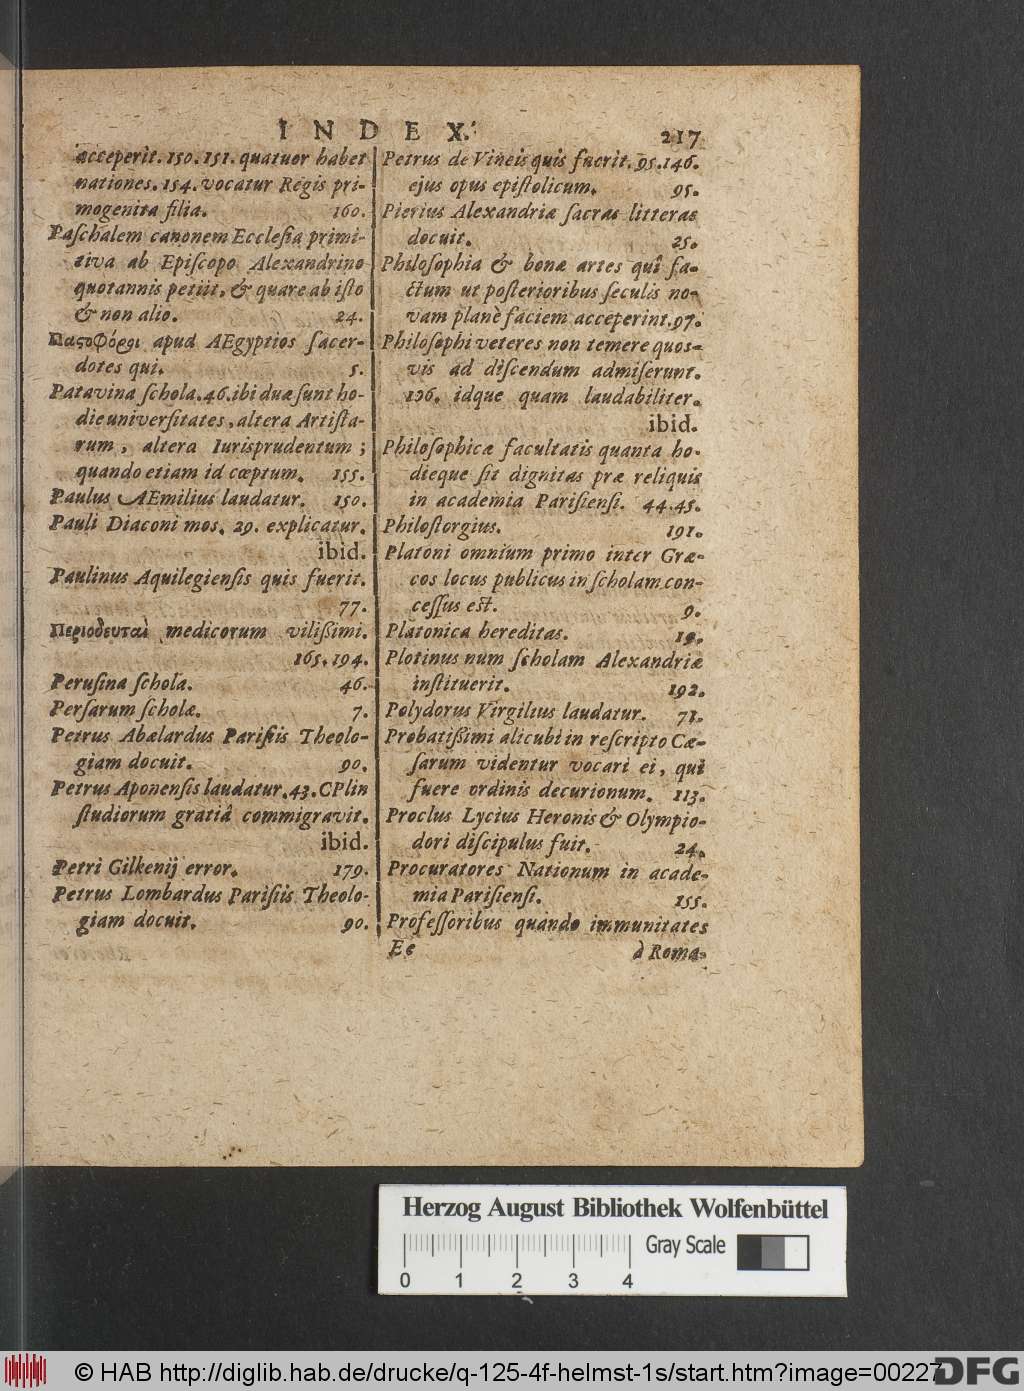 INDEX. 217
acceperit. 150. 151. quatuor habet
nationes. 154. vocatur Regis pri-
mogenita filia. 160.
Paſchalem canonem Eccleſia primi-
tiva ab Epiſcopo Alexandrino
quotannis petiit, & quare ab iſto
& non alio. 24.
Παςοφόροι apud AEgyptios ſacer-
dotes qui. 5.
Patavina ſchola. 46. ibi duæ ſunt ho-
die univerſitates, altera Artiſta-
rum, altera Iurisprudentum;
quando etiam id cœptum. 155.
Paulus AEmilius laudatur. 150.
Pauli Diaconi mos. 29. explicatur.
ibid.
Paulinus Aquilegienſis quis fuerit.
77.
Περιοδευταὶ medicorum viliſſimi.
165. 194.
Peruſina ſchola. 46.
Perſarum ſcholæ. 7.
Petrus Abælardus Pariſiis Theolo-
giam docuit. 90.
Petrus Aponenſis laudatur. 43. CPlin
ſtudiorum gratiâ commigravit.
ibid.
Petri Gilkenij error. 179.
Petrus Lombardus Pariſiis Theolo-
giam docuit. 90.
Petrus de Vineis quis fuerit. 95. 146.
ejus opus epiſtolicum. 95.
Pierius Alexandriæ ſacras litteras
docuit. 25.
Philoſophia & bonæ artes quî fa-
ctum ut poſterioribus ſeculis no-
vam planè faciem acceperint. 97.
Philoſophi veteres non temere quos-
vis ad diſcendum admiſerunt.
196. idque quam laudabiliter.
ibid.
Philoſophicæ facultatis quanta ho-
dieque ſit dignitas præ reliquis
in academia Pariſienſi. 44. 45.
Philoſtorgius. 191.
Platoni omnium primo inter Græ-
cos locus publicus in ſcholam con-
ceſſus eſt. 9.
Platonica hereditas.
Plotinus num ſcholam Alexandriæ
inſtituerit. 192.
Polydorus Virgilius laudatur. 71.
Probatiſſimi alicubi in reſcripto Cæ-
ſarum videntur vocari ei, qui
fuere ordinis decurionum. 113.
Proclus Lycius Heronis & Olympio-
dori diſcipulus fuit. 24.
Procuratores Nationum in acade-
mia Pariſienſi. 155.
Profeſſoribus quando immunitates
Ee à Roma-
Herzog August Bibliothek Wolfenbüttel
Gray Scale
0 1 2 3 4
© HAB http://diglib.hab.de/drucke/q-125-4f-helmst-1s/start.htm?image=00227
DFG